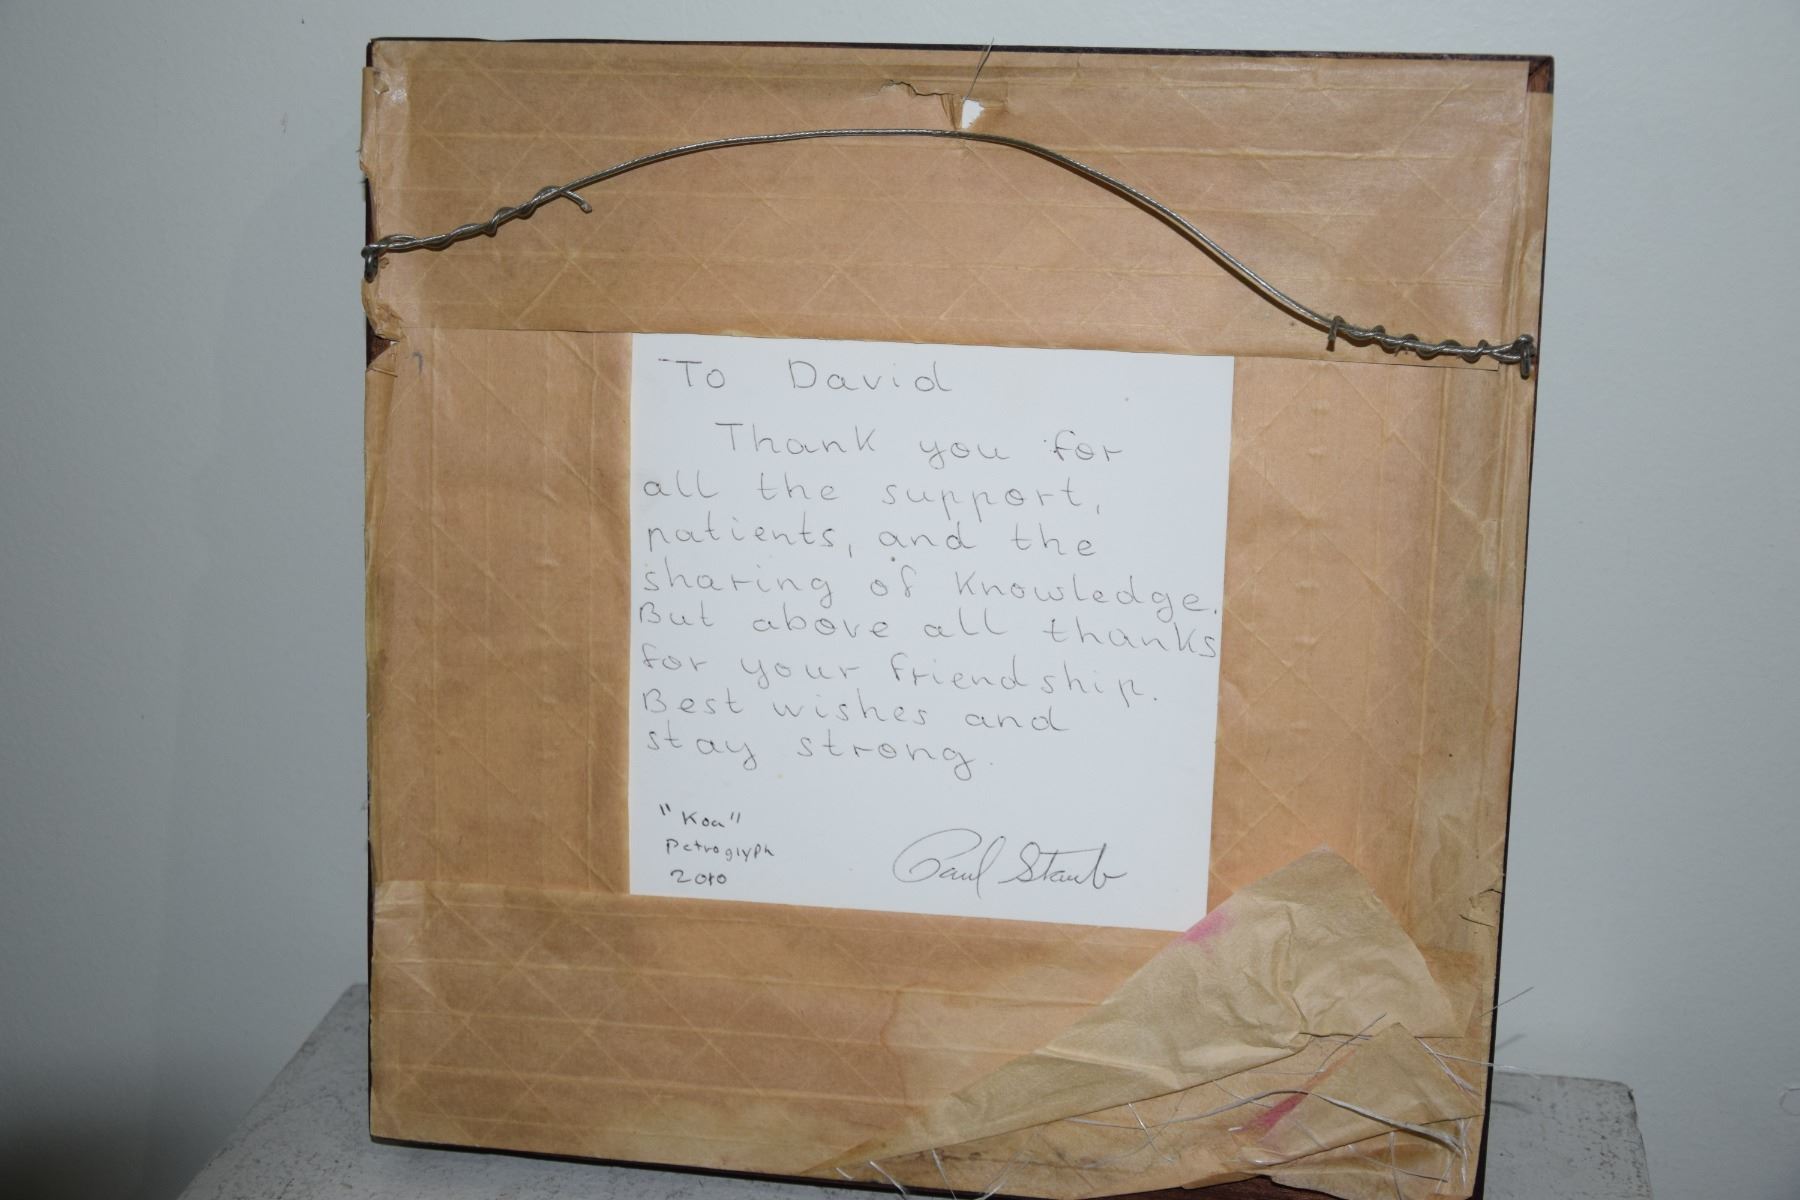 To David
Thank you for
all the support,
patients, and the
sharing of knowledge.
But above all thanks
for your friendship.
Best wishes and
stay strong.
"Koa"
Petroglyph
2010
Paul Staub